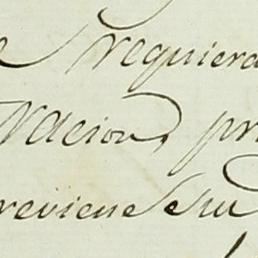 e requiera
Nacion, pr
reviene su